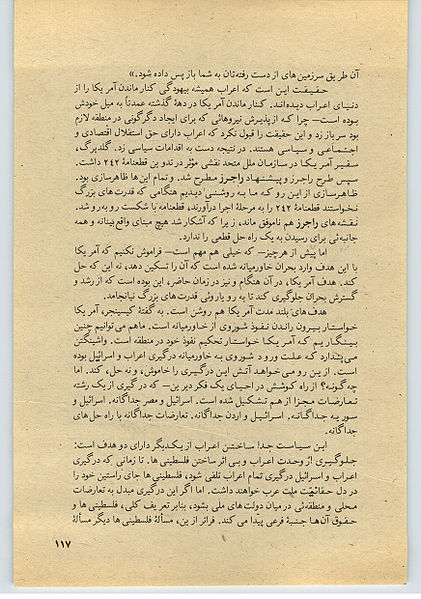 آن طریق سرزمین‌های از دست رفته‌تان به شما باز پس داده شود.»
حقیقت این است که اعراب همیشه بیهودگی کنار ماندن آمریکا را از
دنیای اعراب دیده‌اند. کنار ماندن آمریکا در دههٔ گذشته عمدتاً به میل خودش
بوده است— چرا که از پذیرش نیروهائی که برای ایجاد دگرگونی در منطقه لازم
بود سر باز زد و این حقیقت را قبول نکرد که اعراب دارای حق استقلال اقتصادی و
اجتماعی و سیاسی هستند. در نتیجه دست به اقدامات سیاسی زد. گلدبرگ،
سفیر آمریکا در سازمان ملل متحد نقشی مؤثر در تدوین قطعنامهٔ ۲۴۲ داشت.
سپس طرح راجرز و پیشنهاد راجرز مطرح شد. و تمام این‌ها ظاهرسازی بود.
ظاهرسازی از این رو که ما به روشنی دیدیم هنگامی که قدرت‌های بزرگ
نخواستند قطعنامهٔ ۲۴۲ را به مرحلهٔ اجرا درآورند، قطعنامه با شکست روبه‌رو شد.
نقشه‌های راجرز هم ناموفق ماند، زیرا که آشکار شد هیچ مبنای واقع‌بینانه و همه
جانبه‌ئی برای رسیدن به یک راه حل قطعی را ندارد.
اما پیش از هرچیز— که خیلی هم مهم است— فراموش نکنیم که آمریکا
با این هدف وارد بحران خاورمیانه شده است که آن را تسکین دهد، نه این که حل
کند. هدف آمریکا، در آن هنگام و نیز در زمان حاضر، این بوده است که از رشد و
گسترش بحران جلوگیری کند تا به رویاروئی قدرت‌های بزرگ نیانجامد.
هدف‌های بلند مدت آمریکا هم روشن است. به گفتهٔ کیسینجر، آمریکا
خواستار بیرون راندن نفوذ شوروی از خاورمیانه است. ما هم می‌توانیم چنین
بینگاریم که آمریکا خواستار تحکیم نفوذ خود در منطقه است. واشینگتن
می‌پندارد که علت ورود شوروی به خاورمیانه درگیری اعراب و اسرائیل بوده
است. از این رو می‌خواهد آتش این درگیری را خاموش، و نه حل، کند. اما
چه‌گونه؟ از راه کوشش در احیای یک فکر دیرین— که درگیری از یک رشته
تعارضات مجزا از هم تشکیل شده است. اسرائیل و مصر جداگانه. اسرائیل و
سوریه جداگانه. اسرائیل و اردن جداگانه. تعارضات جداگانه با راه حل‌های
جداگانه.
این سیاست جدا ساختن اعراب از یکدیگر دارای دو هدف است:
جلوگیری از وحدت اعراب و بی اثر ساختن فلسطینی‌ها. تا زمانی که درگیری
اعراب و اسرائیل درگیری تمام اعراب تلقی شود، فلسطینی‌ها جای راستین خود را
در دل حقانیت ملت عرب خواهند داشت. اما اگر این درگیری مبدل به تعارضات
محلی و منطقه‌ئی در میان دولت‌های ملی بشود، بنابر تعریف کلی، فلسطینی‌ها و
حقوق آن‌ها جنبهٔ فرعی پیدا می‌کند. فراتر از این، مسألهٔ فلسطینی‌ها دیگر مسألهٔ
۱۱۷